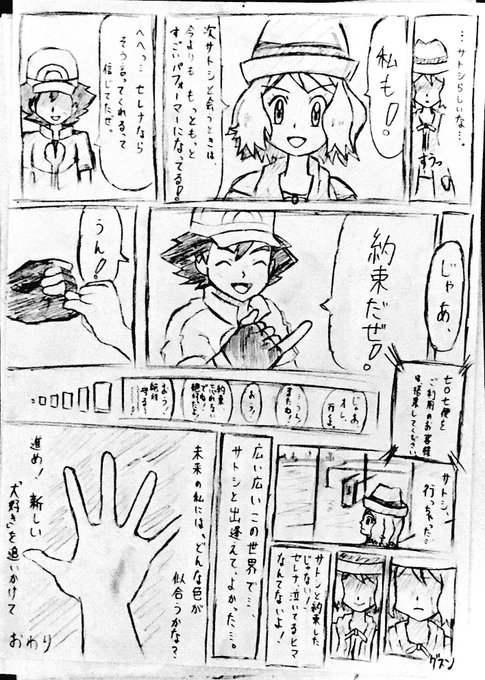 …サトシらしいな…。
すうっ
私も！
次サトシと会うときは、
今よりも もっと、もっと
すごいパフォーマーになってる！
へへっ…セレナなら
そう言ってくれるって
信じてたぜ。
じゃあ、
約束だぜ！
うん！
七〇七便を
ご利用のお客様
は
してください
じゃあ
オレ、
行くよ。
またね！
おう！
約束
忘れない
でね！
絶対だよ！
おう！
絶対
守る！
サトシ、
行っちゃった…
サトシと約束した
じゃない！
セレナ、泣いてるヒマ
なんてないよ！
グスン
広い広いこの世界で…、
サトシと出逢えて、よかった…。
未来の私には、どんな色が
似合うかな？
進め！ 新しい
"大好き"を追いかけて
おわり